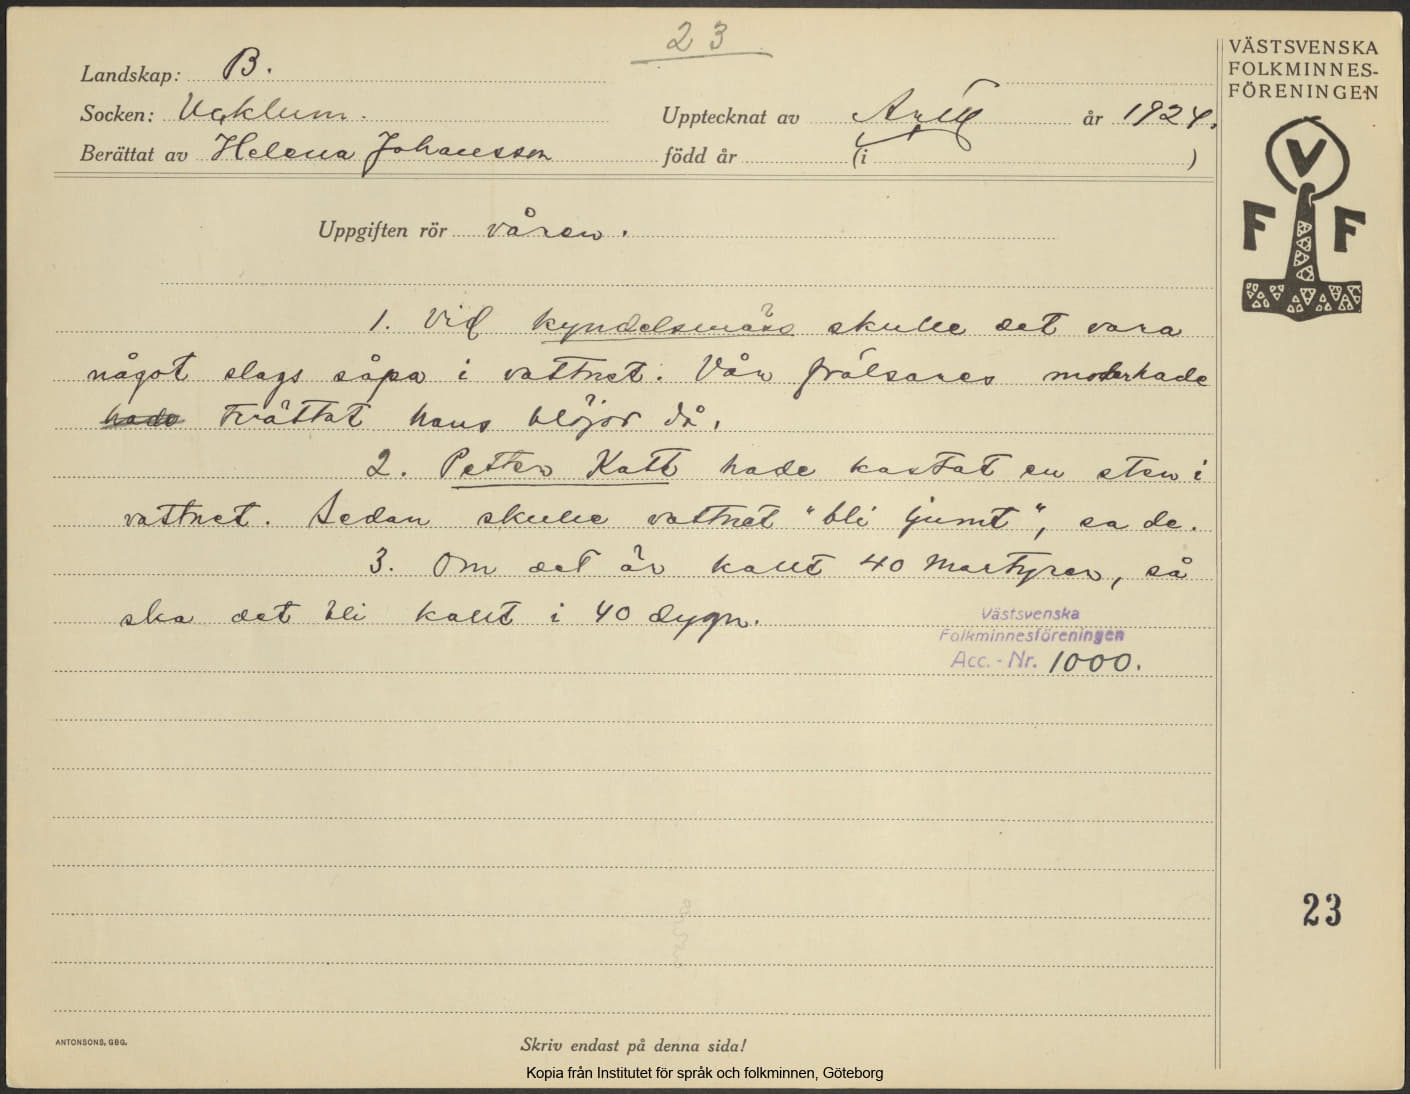 23
VÄSTSVENSKA
FOLKMINNES-
FÖRENINGEN
Landskap: B.
Socken: Ucklum.
Upptecknat av år 1924.
Berättat av Helena Johansson
född år (i )
V
F F
Uppgiften rör våren.
1. Vid kyndelsmäss skulle det vara
något slags såpa i vattnet. Vår frälsares moder hade
hade tvättat hans blöjor då.
2. Petter Katt hade kastat en sten i
vattnet. Sedan skulle vattnet "bli ljumt", sa de.
3. Om det är kallt 40 Martyrer, så
ska det bli kallt i 40 dygn.
Västsvenska
Folkminnesföreningen
Acc.-Nr. 1000.
23
ANTONSONS, GBG.
Skriv endast på denna sida!
Kopia från Institutet för språk och folkminnen, Göteborg